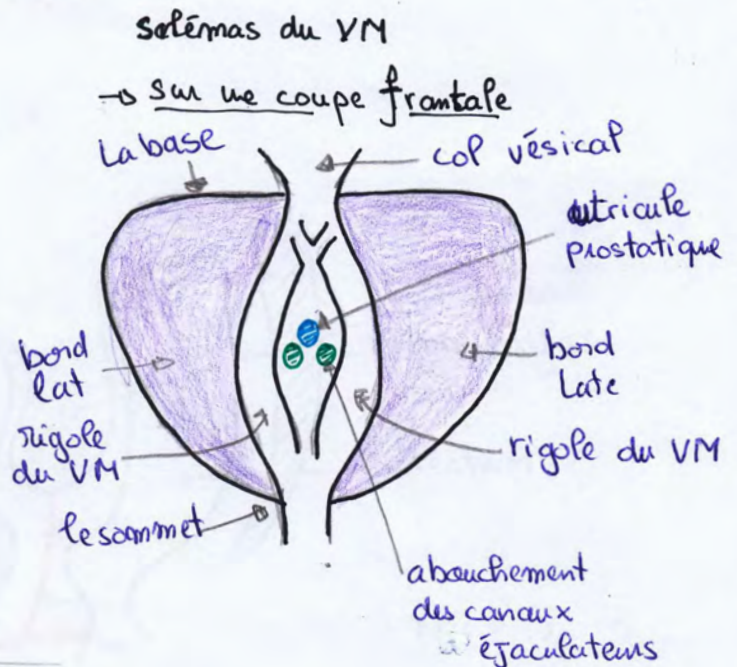 schémas du VM
→ sur une coupe frontale
La base
col vésical
utricule
prostatique
bord
lat
bord
Late
rigole
du VM
rigole du VM
le sommet
abouchement
des canaux
éjaculateurs